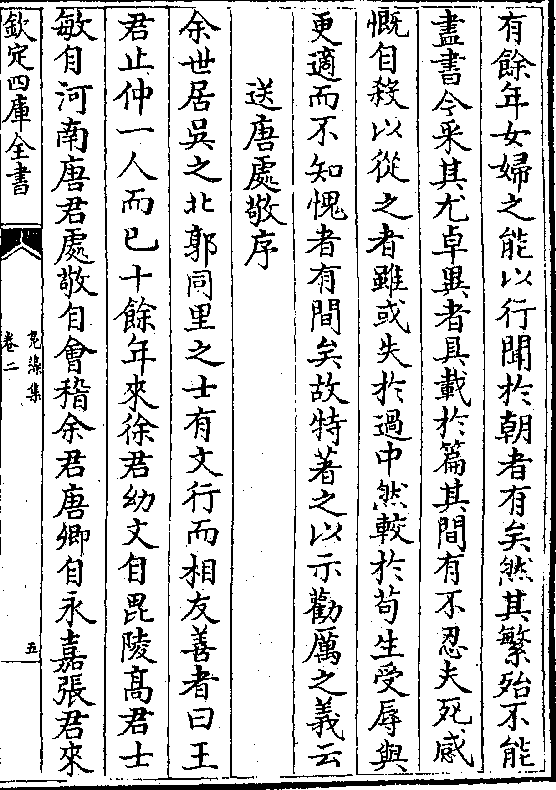 有餘年女婦之能以行聞於朝者有矣然其繁殆不能
盡書今采其尤卓異者具載於篇其間有不忍夫死感
慨自殺以從之者雖或失於過中然較於茍生受辱與
更適而不知愧者有間矣故特著之以示勸厲之義云
送唐處敬序
余世居吳之北郭同里之士有文行而相友善者曰王
君止仲一人而已十餘年來徐君幼文自毘陵髙君士
敏自河南唐君處敬自會稽余君唐卿自永嘉張君來
欽定四庫全書
鳬藻集
卷二
五